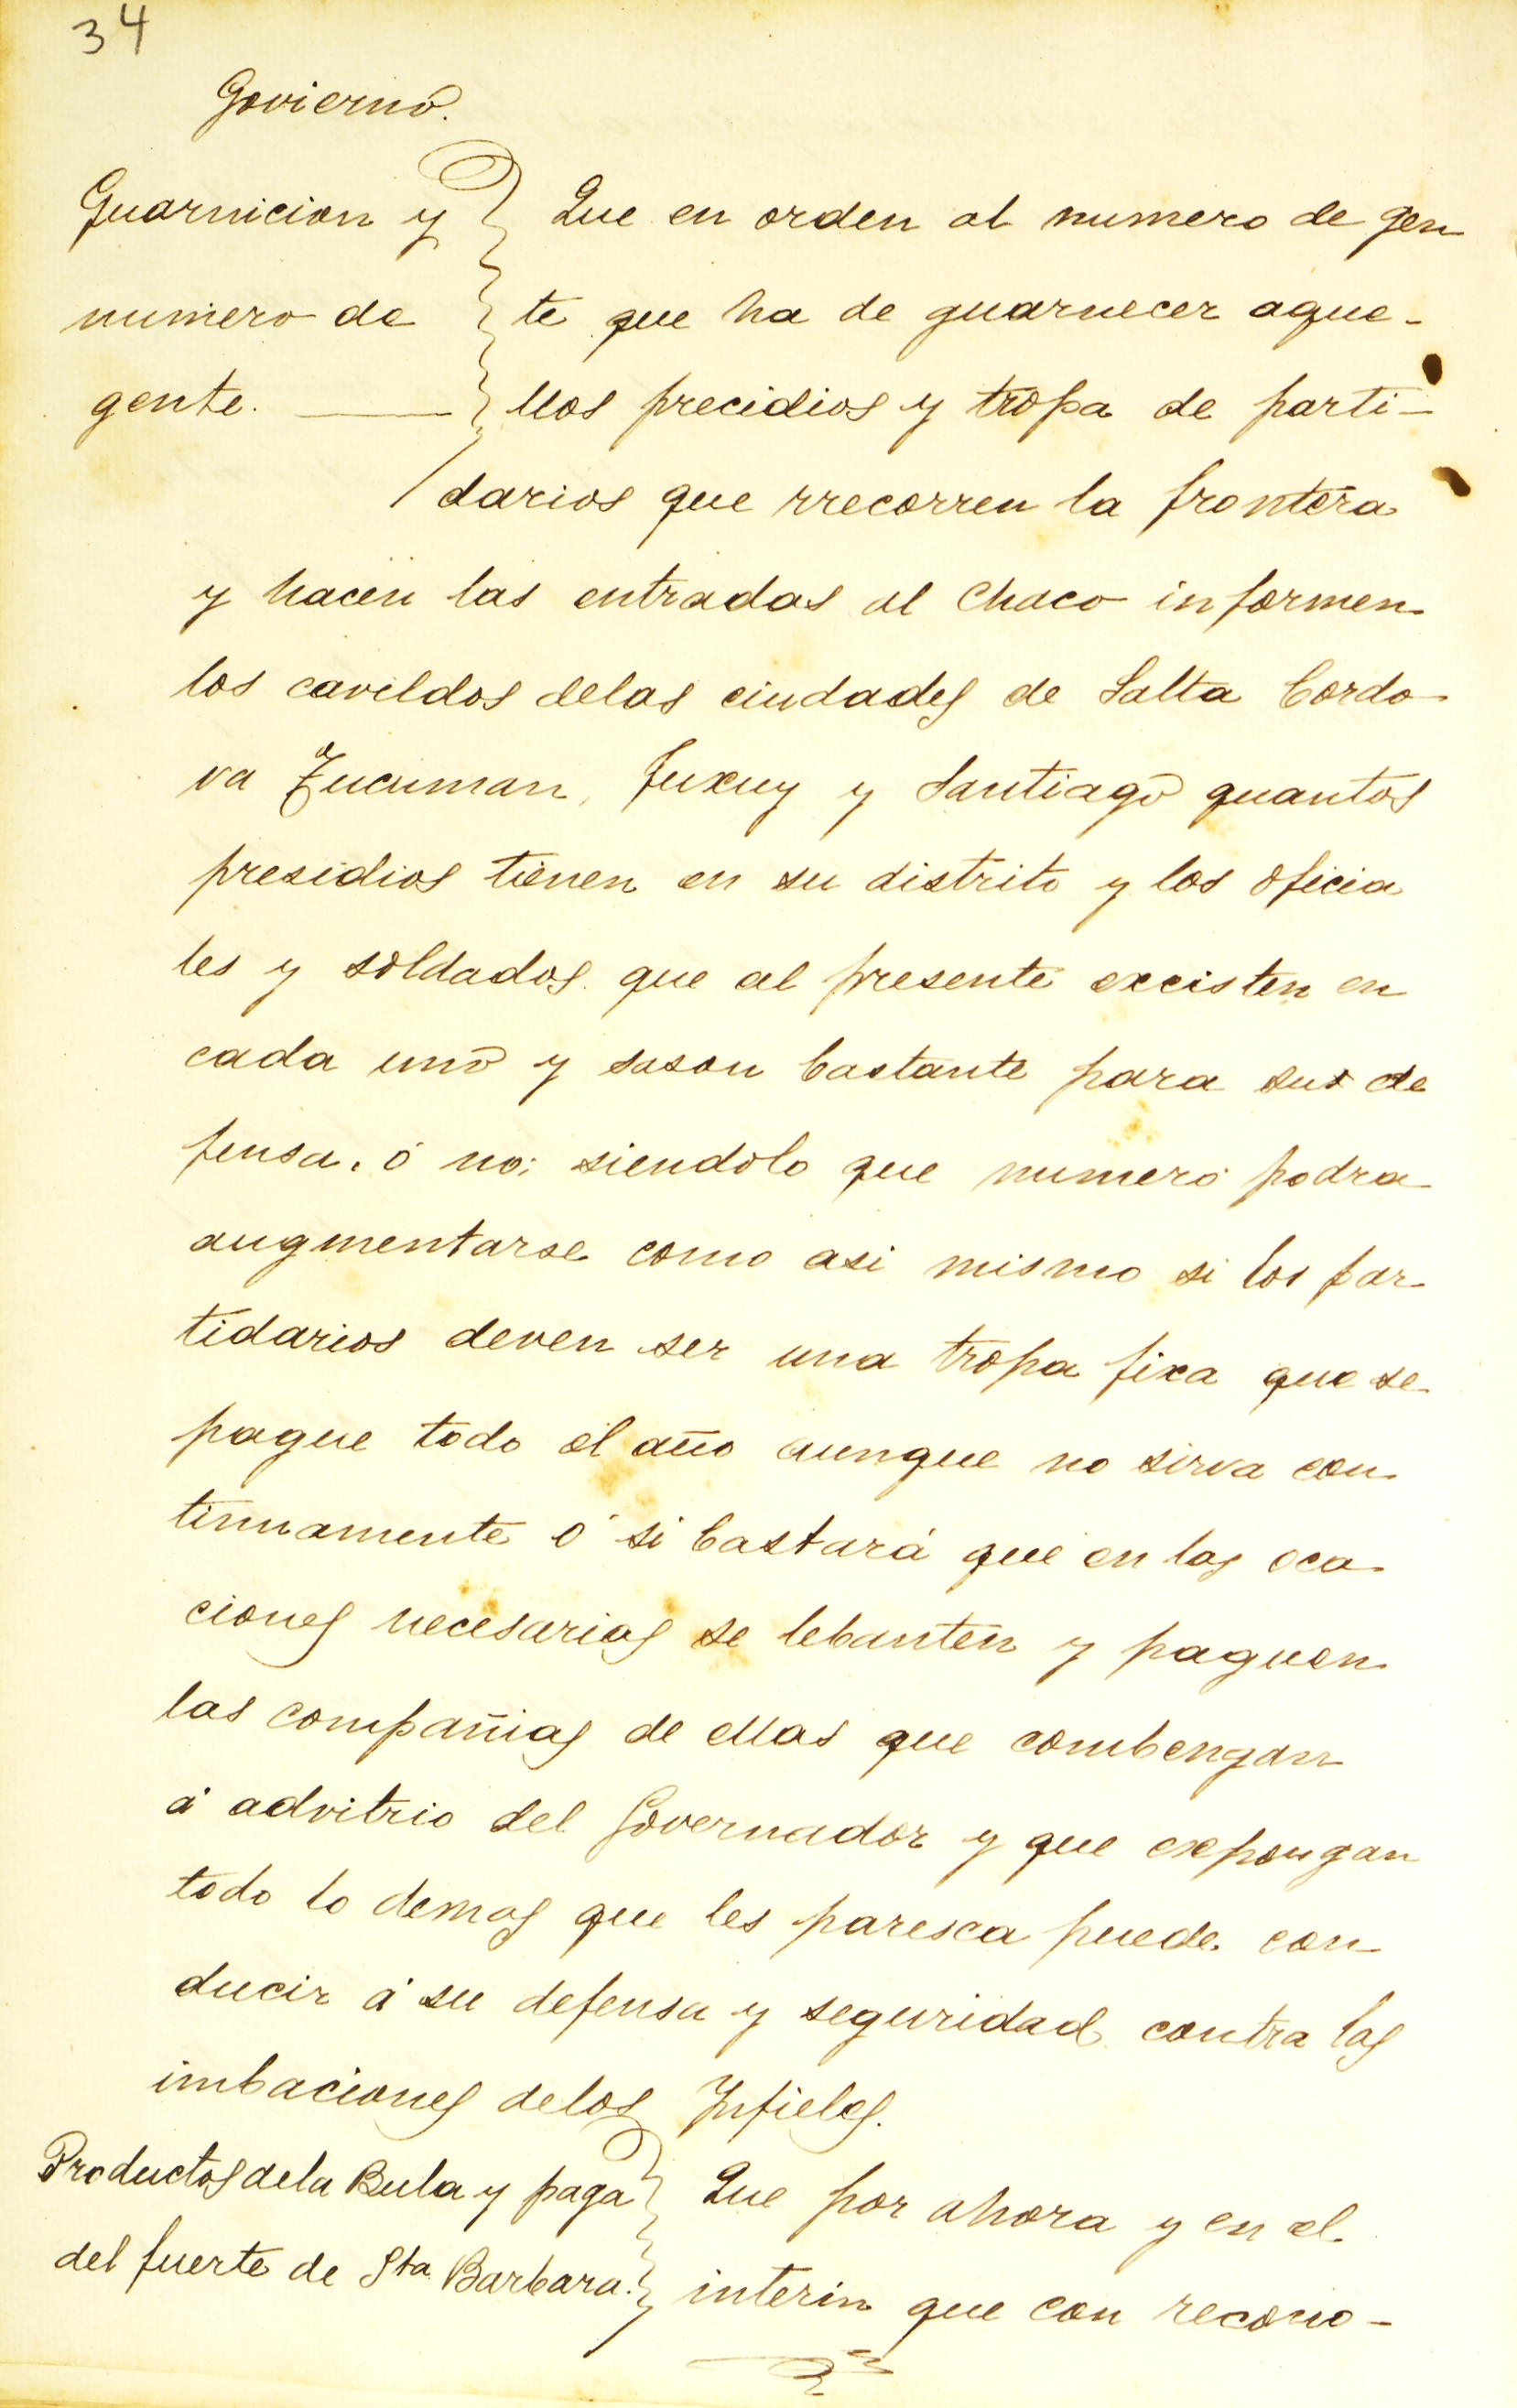 34
Govierno.
Guarnicion y
numero de
gente.
Que en orden al numero de gen
te que ha de guarnecer aque-
llos precidios y tropa de parti-
darios que rrecorren la frontera
y hacen las entradas al Chaco informen
los cavildos delas ciudades de Salta Cordo
va Tucuman, Juxuy y Santiago quantos
presidios tienen en su distrito y los oficia
les y soldados que al presente excisten en
cada uno y sason bastante para sus de
fensa. ó no; siendolo que numero podra
augmentarse como asi mismo si los par
tidarios deven ser una tropa fixa que se
pague todo el año aunque no sirva con
tinuamente ó si bastará que en las oca
ciones necesarias se lebanten y paguen
las compañias de ellas que combengan
á advitrio del Governador y que expongan
todo lo demas que les paresca puede con
ducir á su defensa y seguridad contra las
imbaciones delos Ynfieles.
Productos dela Bula y paga
del fuerte de Sta. Barbara.
Que por ahora y en el
interin que con recono-